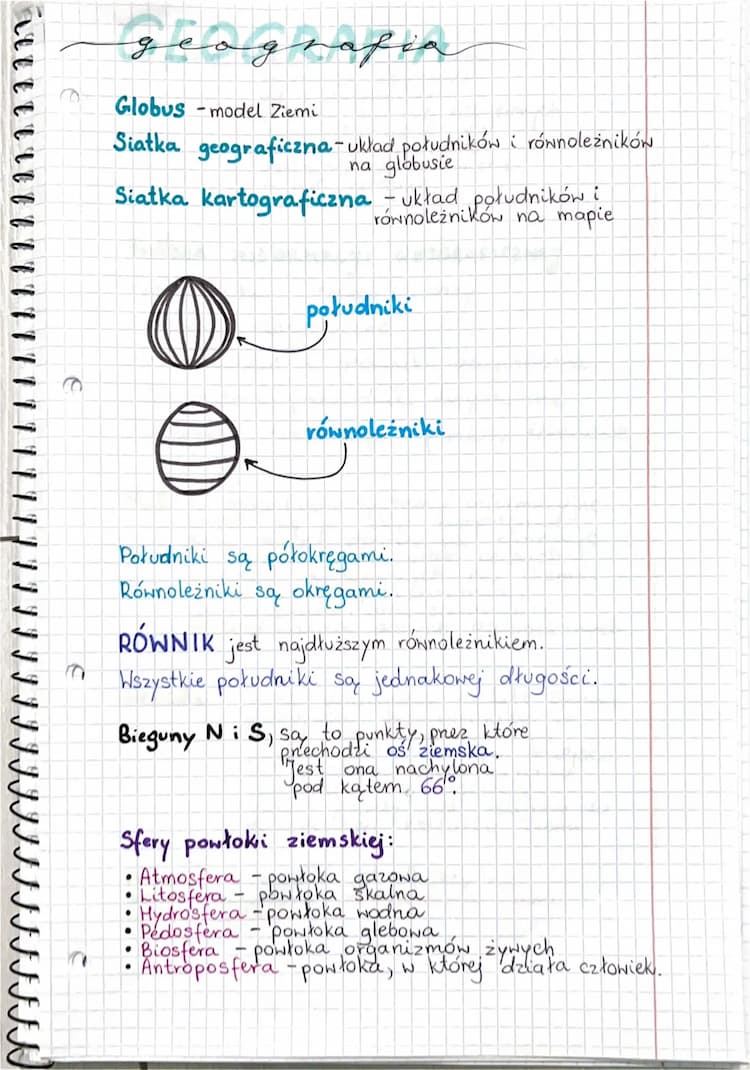 GEOGRAFIA
geografia
Globus - model Ziemi
Siatka geograficzna - układ południków i równoleżników
na globusie
Siatka kartograficzna - układ południków i
równoleżników na mapie
południki
równoleżniki
Południki są półokręgami.
Równoleżniki są okręgami.
RÓWNIK jest najdłuższym równoleżnikiem.
Wszystkie południki są jednakowej długości.
Bieguny N i S, są to punkty, przez które
przechodzi oś ziemska.
Jest ona nachylona
pod kątem 66°.
Sfery powłoki ziemskiej:
• Atmosfera - powłoka gazowa
• Litosfera - powłoka skalna
• Hydrosfera - powłoka wodna
• Pedosfera - powłoka glebowa
• Biosfera - powłoka organizmów żywych
• Antroposfera - powłoka, w której działa człowiek.